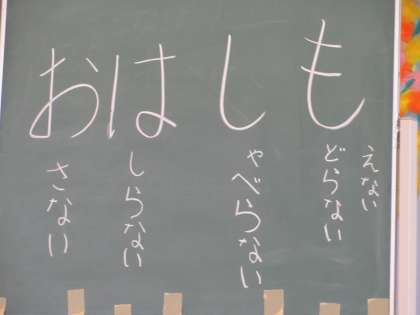 おはしも
さない
しらない
ゃべらない
どらない
えない